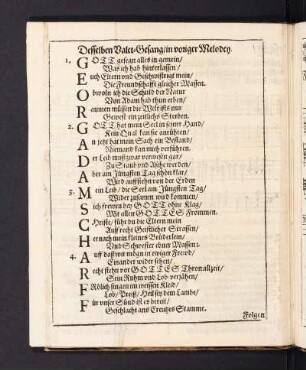 Desselben Valet-Gesang/in voriger Melodey.
1. GOTT gesegn alles in gemein/
Was ich hab hinterlassen/
Euch Eltern und Geschwistrigt mein/
Die Freundschafft gleicher Massen.
Obwoln ich die Schuld der Natur
Von Adam hab thun erben/
müssen die Welt
Gewest ein zeitlichs Sterben.
2. GOTT hat mein Seel in seiner Hand/
Kein Qual kan sie anrühren/
jetzt hat mein Sach ein Bestand/
Niemand kan mich verführen.
Der Leib muß zwar verwesen gar/
Zu Staub und Asche werden/
Aber am Jüngsten Tag schön klar/
Wird aufferstehn von der Erden
3. Mein Leib/ die Seel am Jüngsten Tag/
Wider zusamm wird kommen/
Sich frewen bey GOTT ohne Klag/
Mit allen GOTTES Frommen.
Christe/ führ du die Eltern mein
Auff recht Geistlicher Strassen/
Hernach mein kleines Brüderlein/
Und Schwester ebner Massen.
4. Auff daß wir mögn in ewiger Freud/
Einander wider sehen/
Recht stehn vor GOTTES Thron allzeit/
Sein Ruhm und Lob verjähen/
Frölich singen im weissen Kleid/
Lob/ Preiß/ Heil sey dem Lambe/
Für unser Sünd ist es bereit/
Geschlacht ans Creutzes Stamme.
Folgen